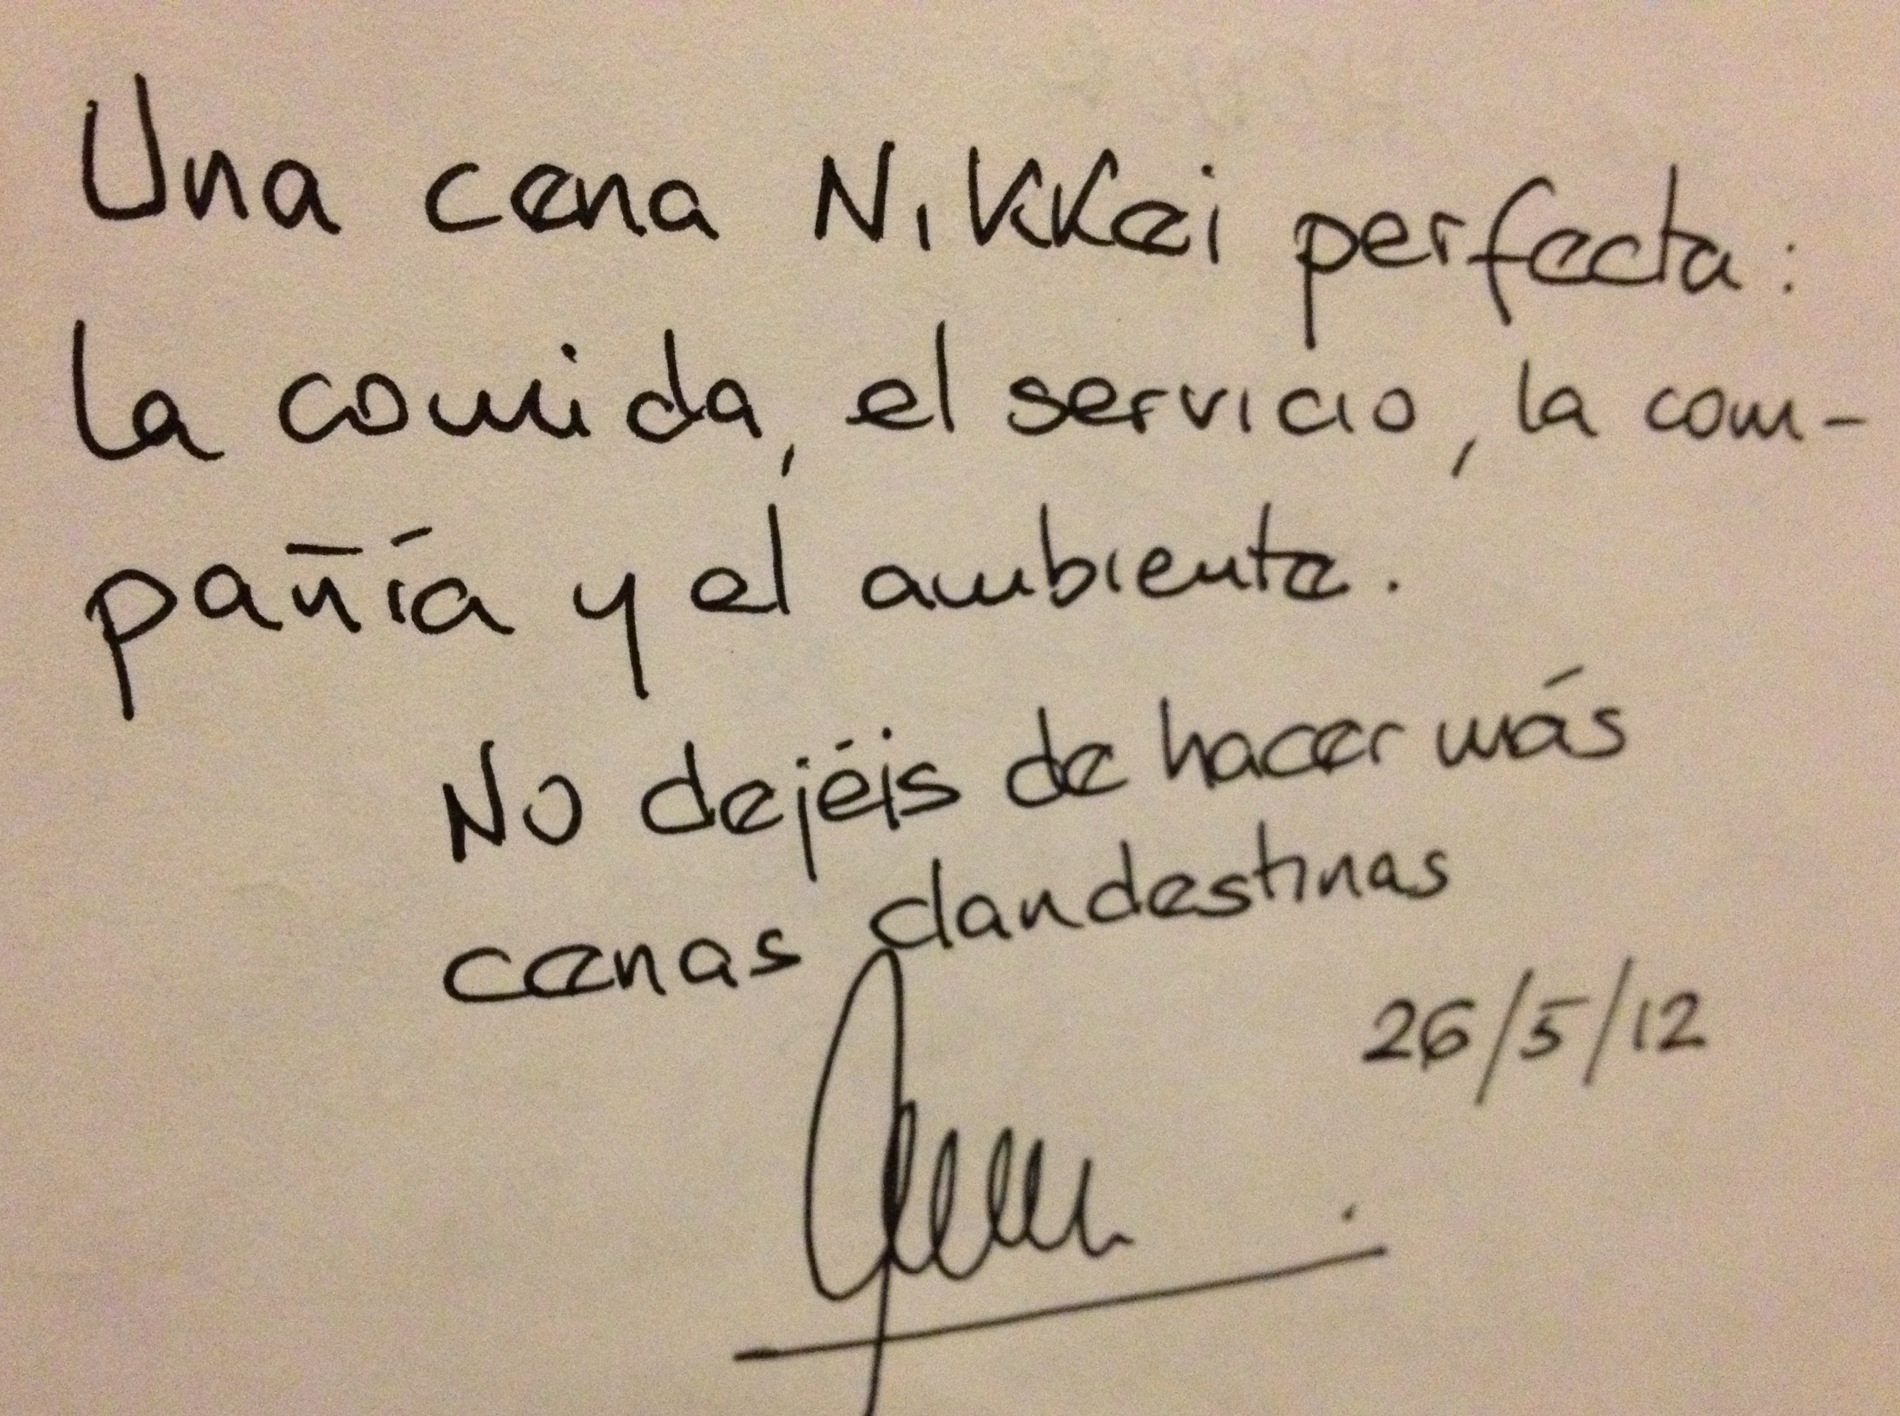 Una cena Nikkei perfecta:
la comida, el servicio, la com-
pañía y el ambiente.
No dejéis de hacer más
cenas clandestinas
26/5/12